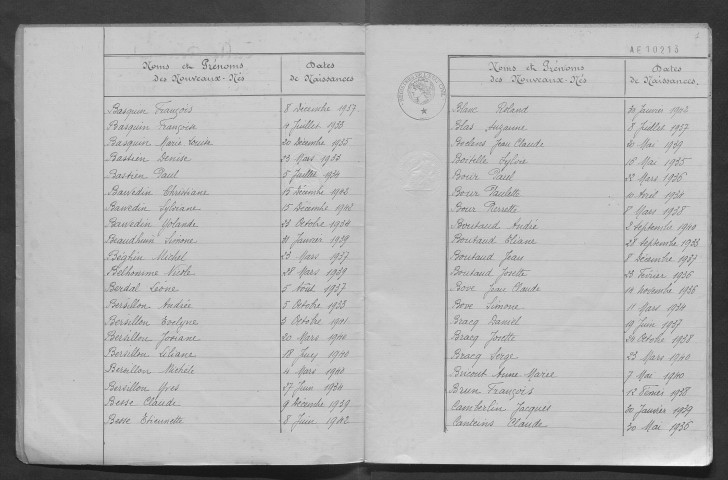 Noms et Prénoms des Nouveaux-Nés
Dates de Naissances
Basquin François 8 Décembre 1937
Basquin Françoise 11 Juillet 1933
Basquin Marie Louise 20 Décembre 1935
Bastien Denise 23 Mars 1933
Bastien Paul 5 Juillet 1934
Bawedin Christiane 15 Décembre 1942
Bawedin Sylviane 15 Décembre 1942
Bawedin Yolande 23 Octobre 1934
Beaudhuin Simone 31 Janvier 1939
Béghin Michel 23 Mars 1937
Belhomme Nicole 28 Mars 1939
Berdal Léone 5 Août 1937
Bersillon Andrée 5 Octobre 1933
Bersillon Evelyne 6 Octobre 1941
Bersillon Josiane 20 Mars 1940
Bersillon Liliane 18 1940
Bersillon Michèle 4 Mars 1940
Bersillon Yves 27 Juin 1934
Besse Claude 9 Décembre 1939
Besse Etiennette 8 Juin 1942
AE10215
Noms et Prénoms des Nouveaux-Nés
Dates de Naissances.
Blanc Roland 30 Janvier 1942
Blas Suzanne 8 Juillet 1937
Jean Claude 20 Mai 1939
Sylvie 16 Mai 1935
Bour 22 Mars 1936
Bour Paulette 11 Avril 1934
Bour Pierrette 8 Mars 1938
Boutaud André 2 Septembre 1940
Boutaud Eliane 28 Septembre 1933
Boutaud Jean 8 Décembre 1937
Boutaud Josette 23 Février 1936
Bove Jean Claude 11 Novembre 1936
Bove Simone 11 Mars 1934
Bracq Daniel 19 Juin 1937
Bracq Josette 26 Octobre 1938
Bracq Serge 23 Mars 1940
Bricout Anne Marie 7 Mai 1940
Brun François 12 Février 1938
Camberlin Jacques 30 Janvier 1939
Claude 30 Mai 1936